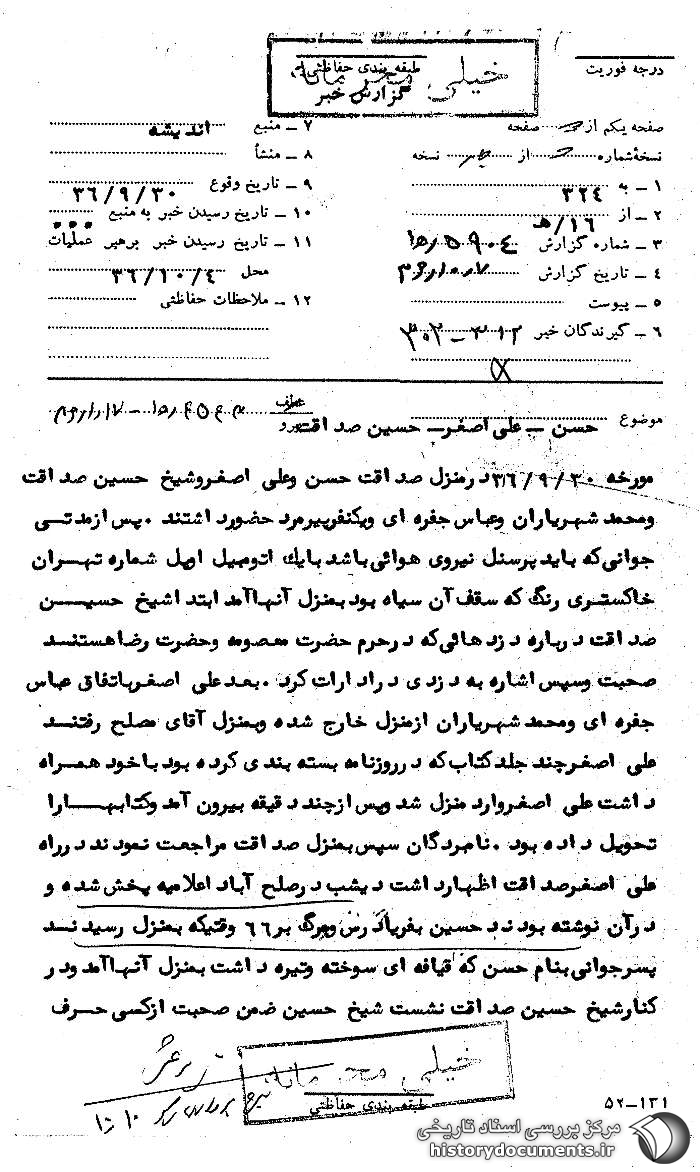 درجه فوریت
خیلی محرمانه
طبقه بندی حفاظتی
گزارش خبر
صفحه یکم از صفحه
نسخهٔ شماره از نسخه
۱ ــ به ۳۲۴
۲ ــ از ۱۶/هـ
۳ ــ شماره گزارش
۴ ــ تاریخ گزارش
۵ ــ پیوست
۶ ــ گیرندگان خبر ۳۱۲ – ۳۰۲
۷ ــ منبع اندیشه
۸ ــ منشأ
۹ ــ تاریخ وقوع ۳۶/۹/۳۰
۱۰ ــ تاریخ رسیدن خبر به منبع
۱۱ ــ تاریخ رسیدن خبر برهبر عملیات
محل ۳۶/۱۰/۴
۱۲ ــ ملاحظات حفاظتی
موضوع حسن – علی اصغر – حسین صداقت
عطف
پیرو
مورخه ۳۶/۹/۳۰ درمنزل صداقت حسن وعلی اصغروشیخ حسین صداقت
ومحمد شهریاران وعباس جفره ای ویکنفرپیرمرد حضورد اشتند .پس ازمدتسی
جوانی که باید پرسنل نیروی هوائی باشد بایك اتومبیل اوپل شماره تهران
خاکستری رنگ که سقف آن سیاه بود بمنزل آنهاآمد ابتد اشیخ حسیــن
صداقت درباره دزدهائی که درحرم حضرت معصومه وحضرت رضاهستنــد
صحبت وسپس اشاره به دزدی درادارات کرد .بعدعلی اصغرباتفاق عباس
جفره ای ومحمد شهریاران ازمنزل خارج شده وبمنزل آقای مصلح رفتنــد
علی اصغرچند جلدکتاب که درروزنامه بسته بندی کرده بود باخود همراه
داشت علی اصغروارد منزل شد وپس ازچند دقیقه بیرون آمد وکتابهــــارا
تحویل داده بود .نامبردگان سپس بمنزل صداقت مراجعت نمودند درراه
علی اصغرصداقت اظهارداشت دیشب درصلح آباد اعلامیه پخش شده و
درآن نوشته بودند حسین بفریاد رس ومرگ بر ۶۶ وقتیکه بمنزل رسیدنــد
پسرجوانی بنام حسن که قیافه ای سوخته وتیره داشت بمنزل آنهاآمد ودر
کنارشیخ حسین صداقت نشست شیخ حسین ضمن صحبت ازکسی حــرف
خیلی محرمانه
طبقه بندی حفاظتی
۵۲–۱۳۱
مرکز بررسی اسناد تاریخی
historydocuments.ir